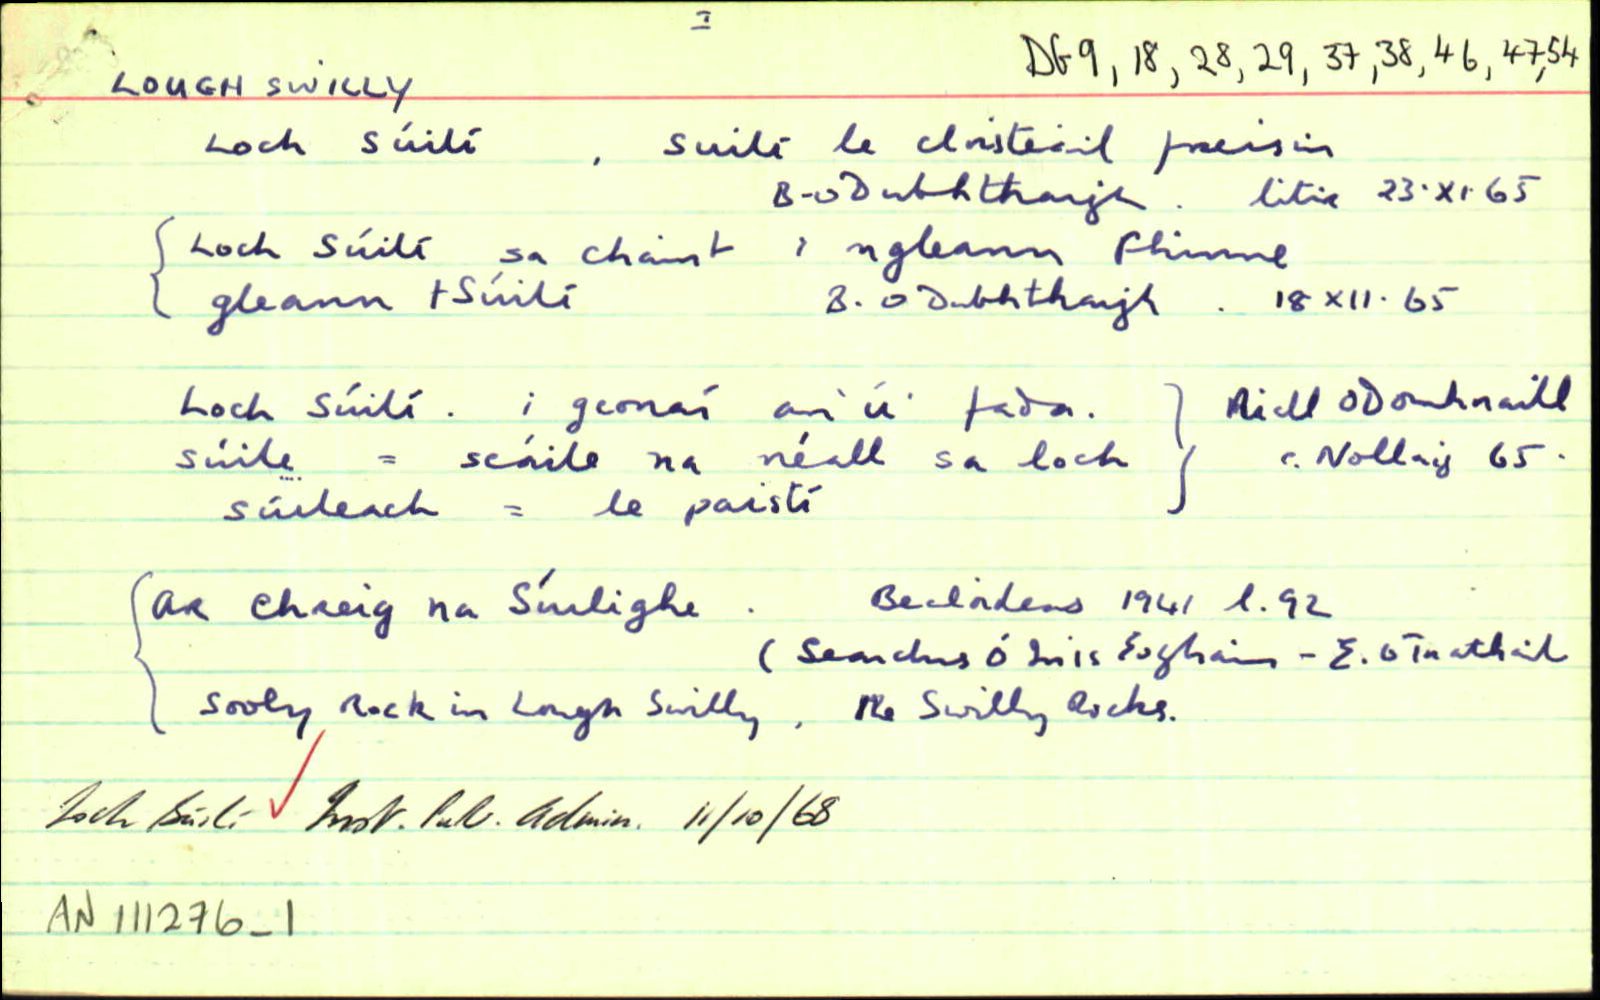 I
DG 9, 18, 28, 29, 37, 38, 46, 47, 54
LOUGH SWILLY
Loch Súilí , Suilí le cloisteáil freisin
B. Ó Dubhthaigh . litir 23.XI.65
Loch Súilí sa chaint i ngleann Fhinne
gleann tSúilí B. Ó Dubhthaigh . 18 XII. 65
Loch Súilí . i gcónaí an 'ú' fada.
Niall Ó Domhnaill
súile = scáile na néall sa loch
c. Nollaig 65.
súileach = le paistí
Ar Chreig na Súilighe . Bealoideas 1941 l. 92
(Seanchas ó Inis Eoghain - É. Ó Tuathail
Sooly Rock in Lough Swilly , the Swilly Rocks.
Loch Súilí Inst. Pub. Admin. 11/10/68
AN 111276_1